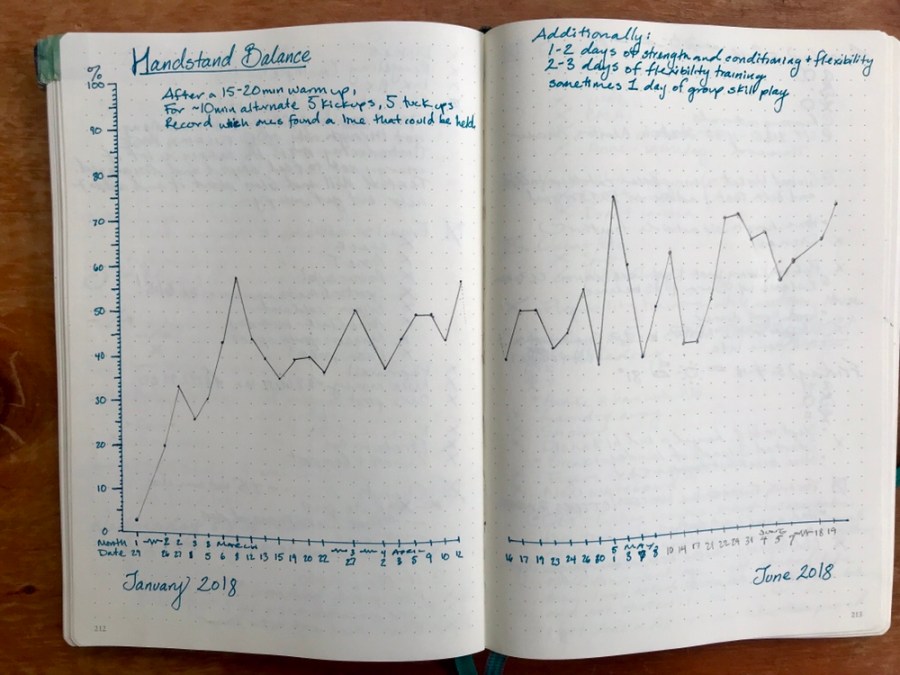 Handstand Balance
%
After a 15-20min warm up,
For ~10min alternate 5 kickups, 5 tuck ups
Record which ones found a line that could be held
100
90
80
70
60
50
40
30
20
10
0
Month 1 2 2 3 3 March 3 4 April
Date 29 26 27 8 5 6 8 12 13 15 19 20 22 27 2 3 5 9 10 12
January 2018
212
Additionally:
1-2 days of strength and conditioning + flexibility
2-3 days of flexibility training
sometimes 1 day of group skill play
5 May June
16 17 19 23 24 26 30 1 3 10 14 17 21 22 24 31 4 5 7 18 19
June 2018
213